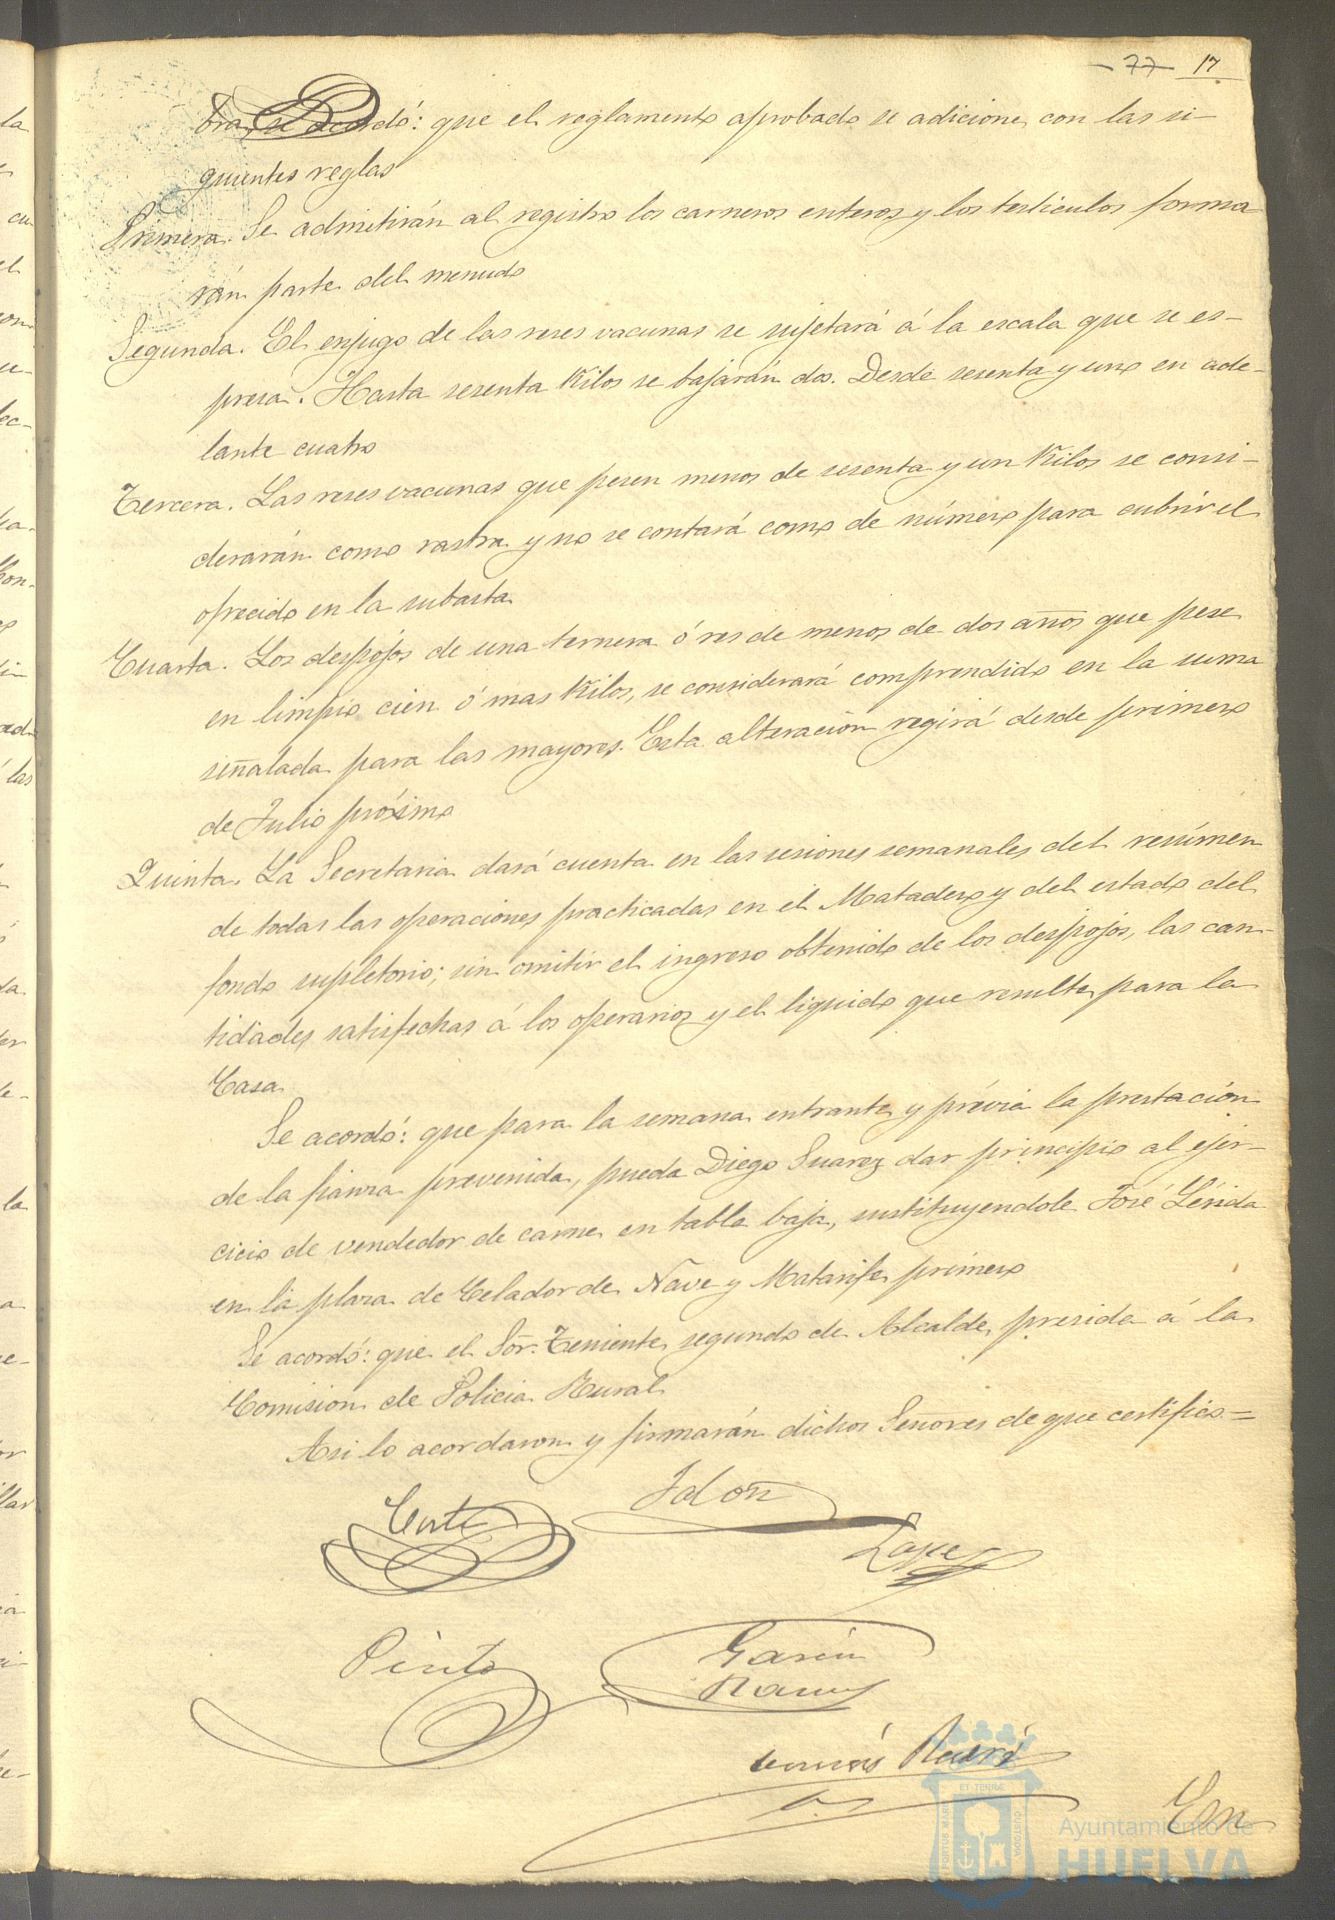 77 17
bra, se acordó: que el reglamento aprobado se adicione con las si-
guientes reglas
Primera. Se admitirán al registro los carneros enteros y los testiculos forma
rán parte del menudo
Segunda. El enjugo de las reses vacunas se sujetará á la escala que se es-
presa. Hasta sesenta Kilos se bajarán dos. Desde sesenta y uno en ade-
lante cuatro
Tercera. Las reses vacunas que pesen menos de sesenta y un Kilos se consi-
derarán como rastra y no se contará como de número para cubrir el
ofrecido en la subasta
Cuarta. Los despojos de una ternera ó res de menos de dos años que pese
en limpio cien ó mas Kilos, se considerará comprendido en la suma
señalada para las mayores. Esta alteración regirá desde primero
de Julio próximo
Quinta. La Secretaria dará cuenta en las sesiones semanales del resúmen
de todas las operaciones practicadas en el Matadero y del estado del
fondo supletorio; sin omitir el ingreso obtenido de los despojos, las can-
tidades satisfechas á los operarios y el liquido que resulte para la
Casa
Se acordó: que para la semana entrante y prévia la prestación
de la fianza prevenida, pueda Diego Suarez dar principio al ejer-
cicio de vendedor de carne en tabla baja, sustituyendole José Lérida
en la plaza de Celador de Nave y Matarife primero
Se acordó: que el Sor. Teniente segundo de Alcalde, presida á la
Comision de Policia Rural
Asi lo acordaron y firmarán dichos Señores de que certifico=
Corte Jalon
Lopez
Pinto Garcia
Ramos
En
ET TERRÆ
PORTUS MARIS
CUSTODIA
Ayuntamiento de
HUELVA